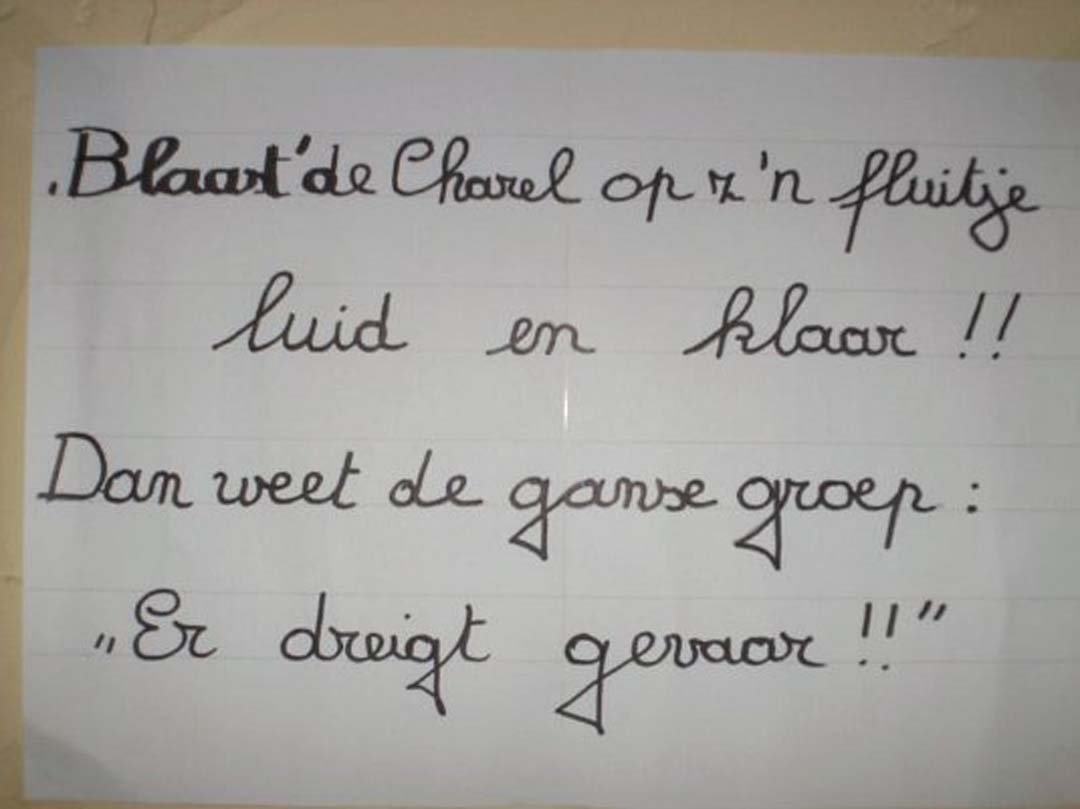 .Blaast' de Charel op z'n fluitje
luid en klaar !!
Dan weet de ganse groep :
„Er dreigt gevaar !!”